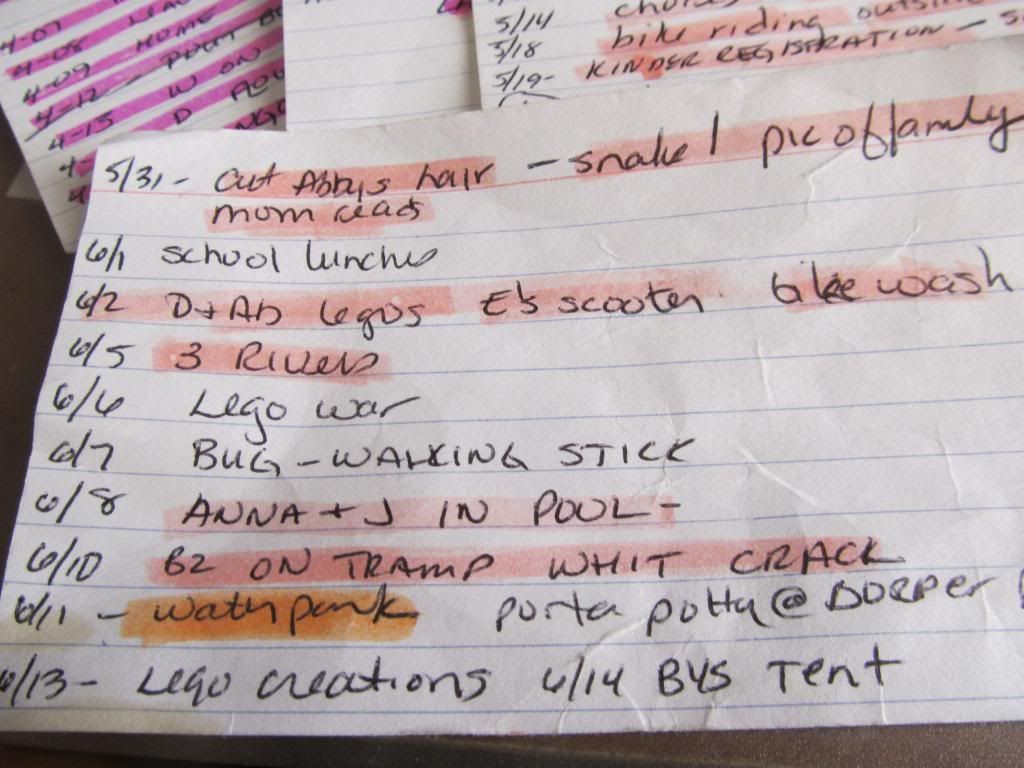 4-07
4-08 HOME
4-09
4-12 - POUT
4-15 W ON
D
5/14
5/18 bike riding outside
5/19- KINDER REGISTRATION -
5/31 - cut Abbys hair - snake | pic of family
mom reads
6/1 school lunches
6/2 D+Ab legos E's scooter bike wash
6/5 3 Rivers
6/6 Lego war
6/7 BUG - WALKING STICK
6/8 ANNA + J IN POOL -
6/10 B2 ON TRAMP WHIT CRACK
6/11 - watr park porta potty @ DORPER
6/13 - Lego creations 6/14 BYS Tent